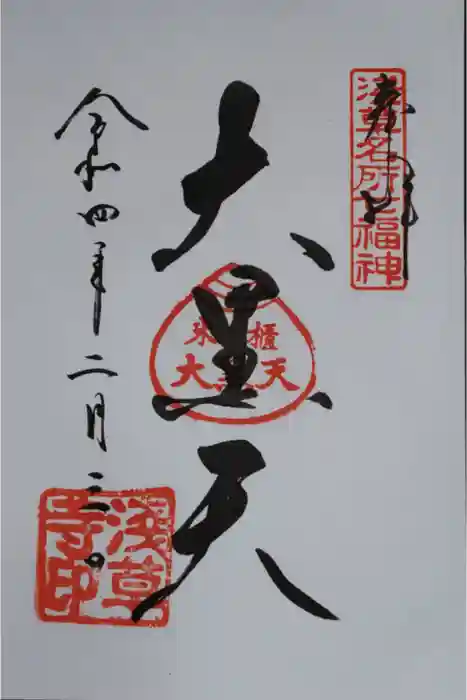 奉拝
浅草名所七福神
大黒天
米櫃
大黒天
令和四年二月三日
浅草寺印